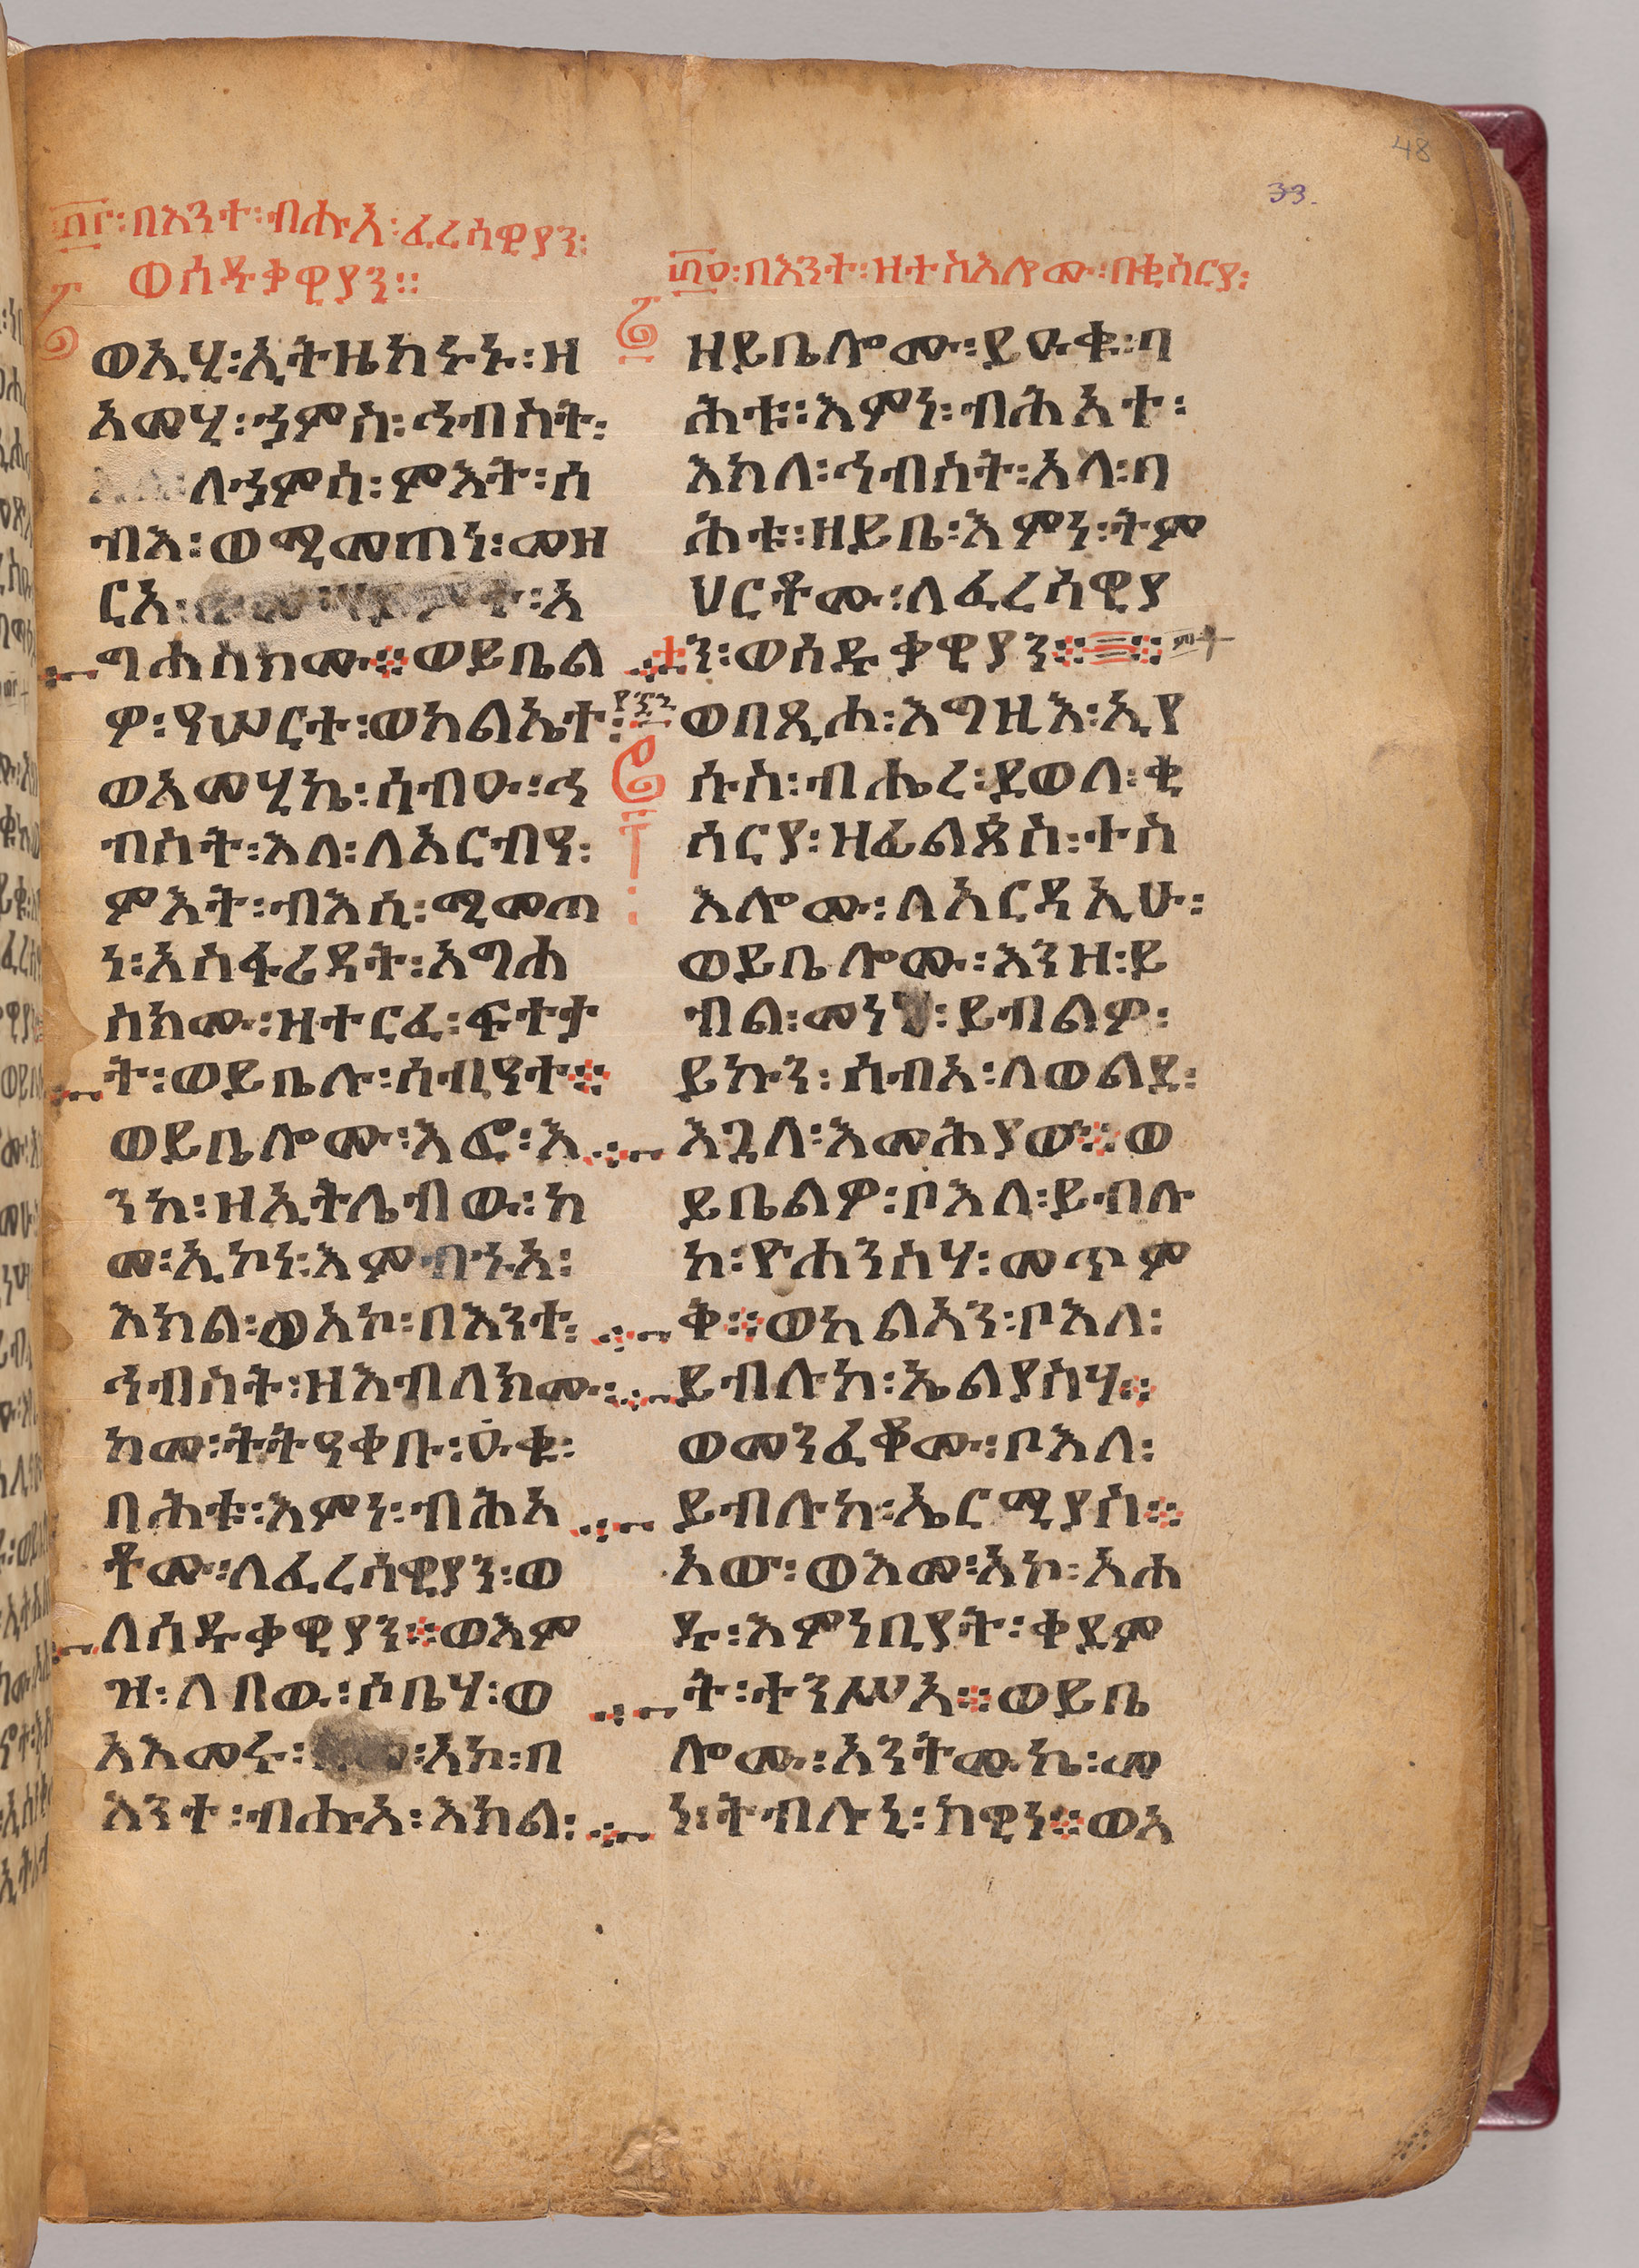 48
33.
፴፫፡በእንተ፡ብሑእ፡ፈሪሳዊያን፡
ወሰዱቃዊያን።
ወኢሂ፡ኢትዜከኑኑ፡ዘ
አመሂ፡ኀምስ፡ኅብስት፡
ለኀምሳ፡ምእት፡ሰ
ብእ፡ወሚመጠነ፡መዝ
ርአ፡አ
ግሐስክሙ፨ወይቤል
ዎ፡ዓሠርተ፡ወክልኤተ፡
ወአመሂኬ፡ሰብዑ፡ኅ
ብስት፡እለ፡ለአርብዓ፡
ምእት፡ብእሲ፡ሚመጠ
ነ፡አስፋሪዳት፡አግሐ
ስክሙ፡ዘተርፈ፡ፍተታ
ት፡ወይቤሉ፡ሰብዓተ፨
ወይቤሎሙ፡እፎ፡እ
ንከ፡ዘኢትሌብዉ፡ከ
መ፡ኢኮነ፡እምብኁእ፡
እክል፡ወአኮ፡በእንተ፡
ኅብስት፡ዘእብለክሙ፡
ከመ፡ትትዓቀቡ፡ዑቁ፡
በሕቱ፡እምነ፡ብሕእ
ቶሙ፡ለፈሪሳዊያን፡ወ
ለሰዱቃዊያን፨ወእም
ዝ፡ለበዉ፡ሶቤሃ፡ወ
አእመሩ፡አኮ፡በ
እንተ፡ብሑእ፡እክል፡
፴፬፡በእንተ፡ዘተስእሎሙ፡በቂሳርያ፡
ዘይቤሎሙ፡ይዑቁ፡ባ
ሕቱ፡እምነ፡ብሕእተ፡
እክለ፡ኅብስት፡አላ፡ባ
ሕቱ፡ዘይቤ፡እምነ፡ትም
ህርቶሙ፡ለፈሪሳዊያ
ን፡ወሰዱቃዊያን፨
ወበጺሖ፡እግዚእ፡ኢየ
ሱስ፡ብሔረ፡ደወለ፡ቂ
ሳርያ፡ዘፊልጶስ፡ተስ
እሎሙ፡ለአርዳኢሁ፡
ወይቤሎሙ፡እንዘ፡ይ
ብል፡መነ፡ይብልዎ፡
ይኩን፡ሰብእ፡ለወልደ፡
እጓለ፡እመሕያው፨ወ
ይቤልዎ፡ቦእለ፡ይብሉ
ከ፡ዮሐንስሃ፡መጥም
ቅ፨ወካልኣን፡ቦእለ፡
ይብሉከ፡ኤልያስሃ፨
ወመንፈቆሙ፡ቦእለ፡
ይብሉከ፡ኤርሚያስ፨
አው፡ወእመ፡አኮ፡አሐ
ዱ፡እምነቢያት፡ቀደም
ት፡ተንሥአ፨ወይቤ
ሎሙ፡አንትሙኬ፡መ
ነ፡ትብሉኒ፡ከዊነ፨ወአ